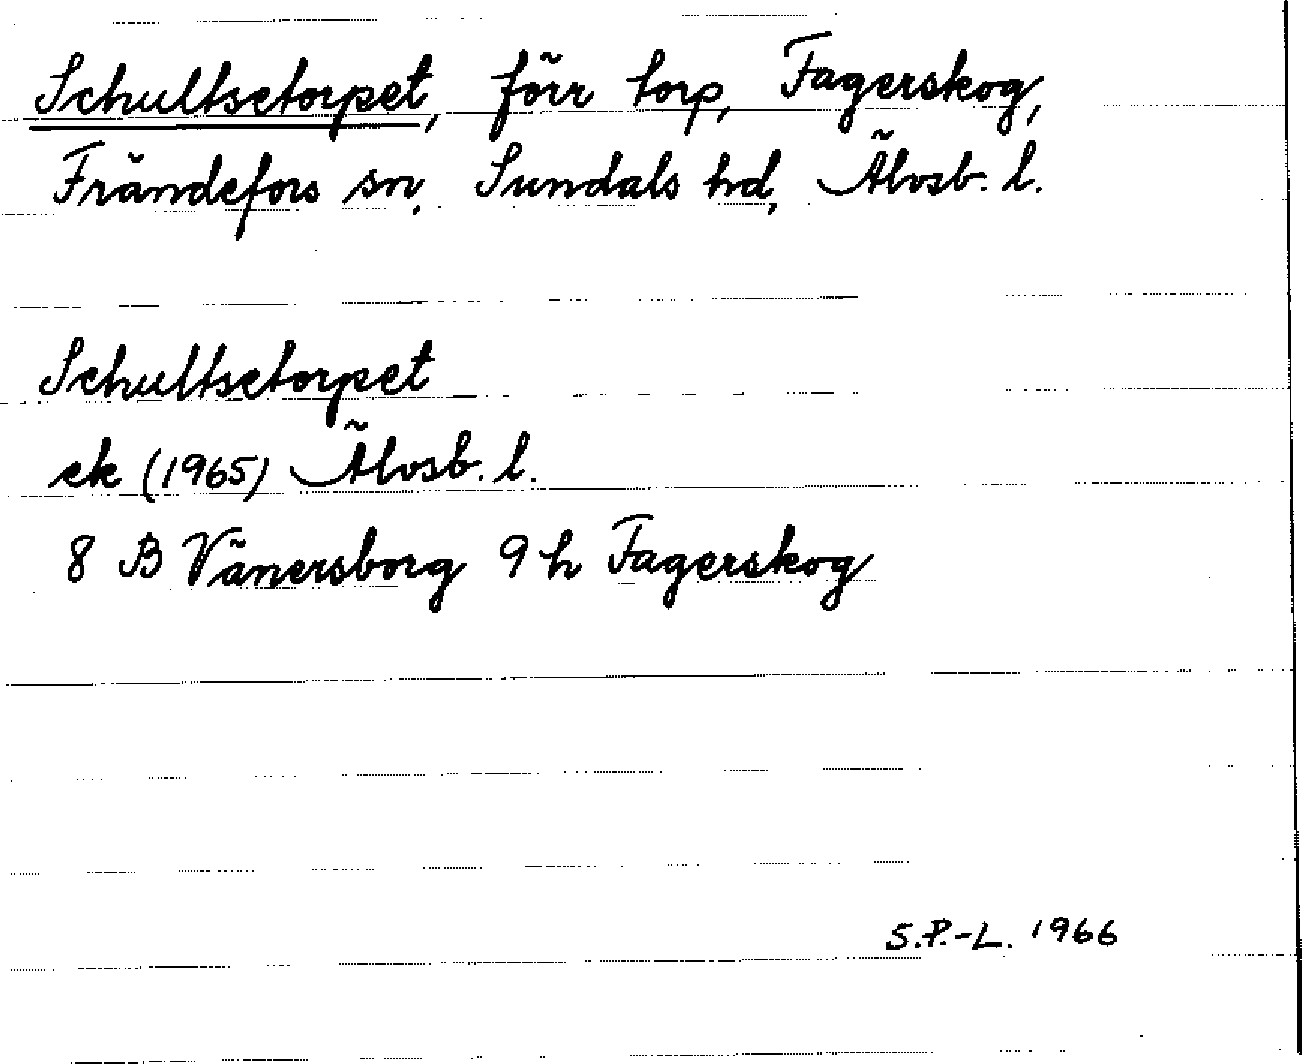 Schultsetorpet, förr torp, Fagerskog,
Frändefors sn, Sundals hd, Älvsb. l.
Schultsetorpet
ek (1965) Älvsb. l.
8 B Vänersborg 9 h Fagerskog
S.P.-L. 1966